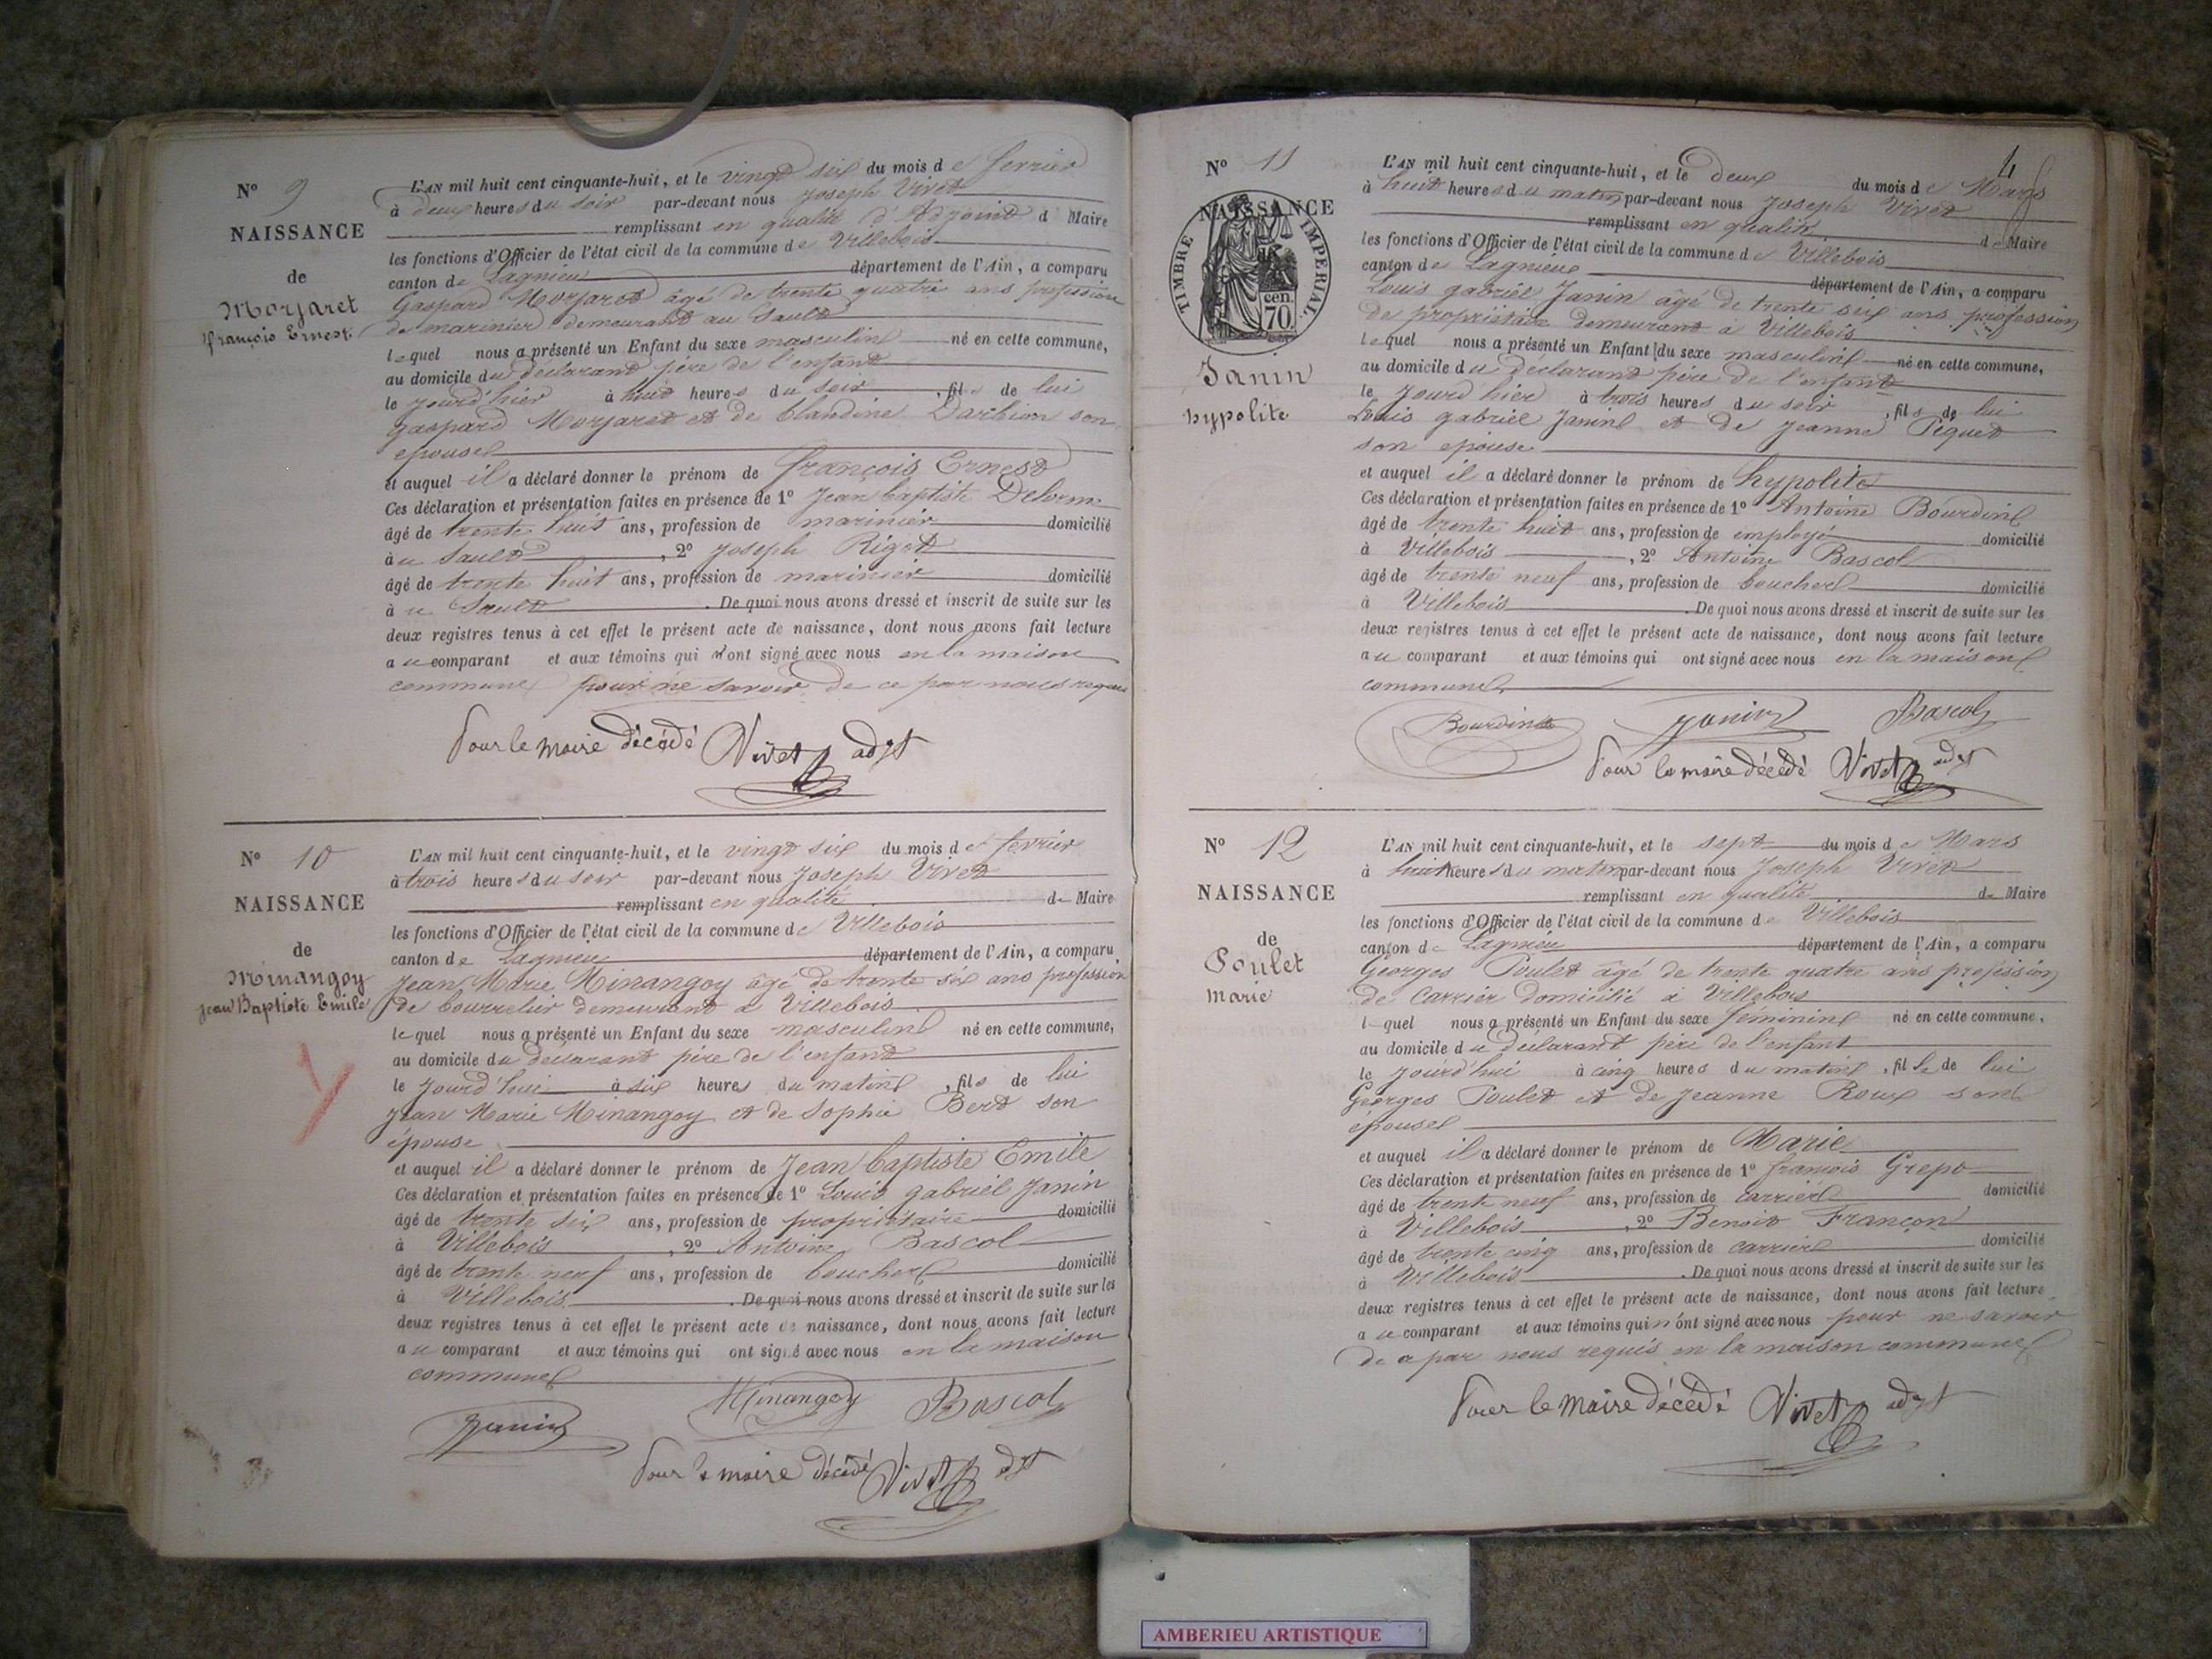 N° 9
NAISSANCE
de
Morjaret
françois Ernest
L'AN mil huit cent cinquante-huit, et le vingt six du mois de fevrier
à deux heures du soir par-devant nous Joseph Vivet
remplissant en qualité d'Adjoint d Maire
les fonctions d'Officier de l'état civil de la commune de Villebois
canton de Lagnieu département de l'Ain, a comparu
Gaspard Morjaret âgé de trente quatre ans profession
de marinier demeurant au Sault
lequel nous a présenté un Enfant du sexe masculin né en cette commune,
au domicile du déclarant père de l'enfant
le jourd'hier à huit heures du soir, fils de lui
gaspard Morjaret et de Claudine Darbion son
epouse
et auquel il a déclaré donner le prénom de françois Ernest
Ces déclaration et présentation faites en présence de 1° Jean baptiste Delorme
âgé de trente huit ans, profession de marinier domicilié
à u Sault, 2° Joseph Rigot
âgé de trente huit ans, profession de marinier domicilié
à u Sault. De quoi nous avons dressé et inscrit de suite sur les
deux registres tenus à cet effet le présent acte de naissance, dont nous avons fait lecture
au comparant et aux témoins qui n'ont signé avec nous en la maison
commune pour ne savoir de ce par nous requis
Pour le maire décédé Vivet adjt
N° 10
NAISSANCE
de
Minangoy
Jean Baptiste Emile
L'AN mil huit cent cinquante-huit, et le vingt six du mois de fevrier
à trois heures du soir par-devant nous Joseph Vivet
remplissant en qualité de Maire
les fonctions d'Officier de l'état civil de la commune de Villebois
canton de Lagnieu département de l'Ain, a comparu
Jean Marie Minangoy âgé de trente six ans profession
de bourrelier demeurant à Villebois
lequel nous a présenté un Enfant du sexe masculin né en cette commune,
au domicile du déclarant père de l'enfant
le jourd'hui à six heures du matin, fils de lui
Jean Marie Minangoy et de Sophie Bert son
épouse
et auquel il a déclaré donner le prénom de Jean baptiste Emile
Ces déclaration et présentation faites en présence de 1° Louis gabriel Janin
âgé de trente six ans, profession de propriétaire domicilié
à Villebois, 2° Antoine Bascol
âgé de trente neuf ans, profession de boucher domicilié
à Villebois. De quoi nous avons dressé et inscrit de suite sur les
deux registres tenus à cet effet le présent acte de naissance, dont nous avons fait lecture
au comparant et aux témoins qui ont signé avec nous en la maison
commune
Janin Minangoy Bascol
Pour le maire décédé Vivet adjt
4
N° 11
NAISSANCE
TIMBRE IMPERIAL
70 cen.
Janin
hypolite
L'AN mil huit cent cinquante-huit, et le deux du mois de Mars
à huit heures du matin par-devant nous Joseph Vivet
remplissant en qualité de Maire
les fonctions d'Officier de l'état civil de la commune de Villebois
canton de Lagnieu département de l'Ain, a comparu
Louis gabriel Janin âgé de trente six ans profession
de propriétaire demeurant à Villebois
lequel nous a présenté un Enfant du sexe masculin né en cette commune,
au domicile du déclarant père de l'enfant
le jourd'hier à trois heures du soir, fils de lui
Louis gabriel Janin et de Jeanne Piquet
son epouse
et auquel il a déclaré donner le prénom de hypolite
Ces déclaration et présentation faites en présence de 1° Antoine Bourdin
âgé de trente huit ans, profession de employé domicilié
à Villebois, 2° Antoine Bascol
âgé de trente neuf ans, profession de boucher domicilié
à Villebois. De quoi nous avons dressé et inscrit de suite sur les
deux registres tenus à cet effet le présent acte de naissance, dont nous avons fait lecture
au comparant et aux témoins qui ont signé avec nous en la maison
commune
Bourdin Janin Bascol
Pour le maire décédé Vivet adjt
N° 12
NAISSANCE
de
Poulet
marie
L'AN mil huit cent cinquante-huit, et le sept du mois de Mars
à huit heures du matin par-devant nous Joseph Vivet
remplissant en qualité de Maire
les fonctions d'Officier de l'état civil de la commune de Villebois
canton de Lagnieu département de l'Ain, a comparu
Georges Poulet âgé de trente quatre ans profession
de Carrier domicilié à Villebois
lequel nous a présenté un Enfant du sexe féminin né en cette commune,
au domicile du déclarant père de l'enfant
le jourd'hui à cinq heures du matin, fille de lui
Georges Poulet et de Jeanne Roux son
épouse
et auquel il a déclaré donner le prénom de Marie
Ces déclaration et présentation faites en présence de 1° françois Grepo
âgé de trente neuf ans, profession de carrier domicilié
à Villebois, 2° Benoit Françon
âgé de trente cinq ans, profession de carrier domicilié
à Villebois. De quoi nous avons dressé et inscrit de suite sur les
deux registres tenus à cet effet le présent acte de naissance, dont nous avons fait lecture
au comparant et aux témoins qui n'ont signé avec nous pour ne savoir
de ce par nous requis en la maison commune
Pour le maire décédé Vivet adjt
AMBERIEU ARTISTIQUE